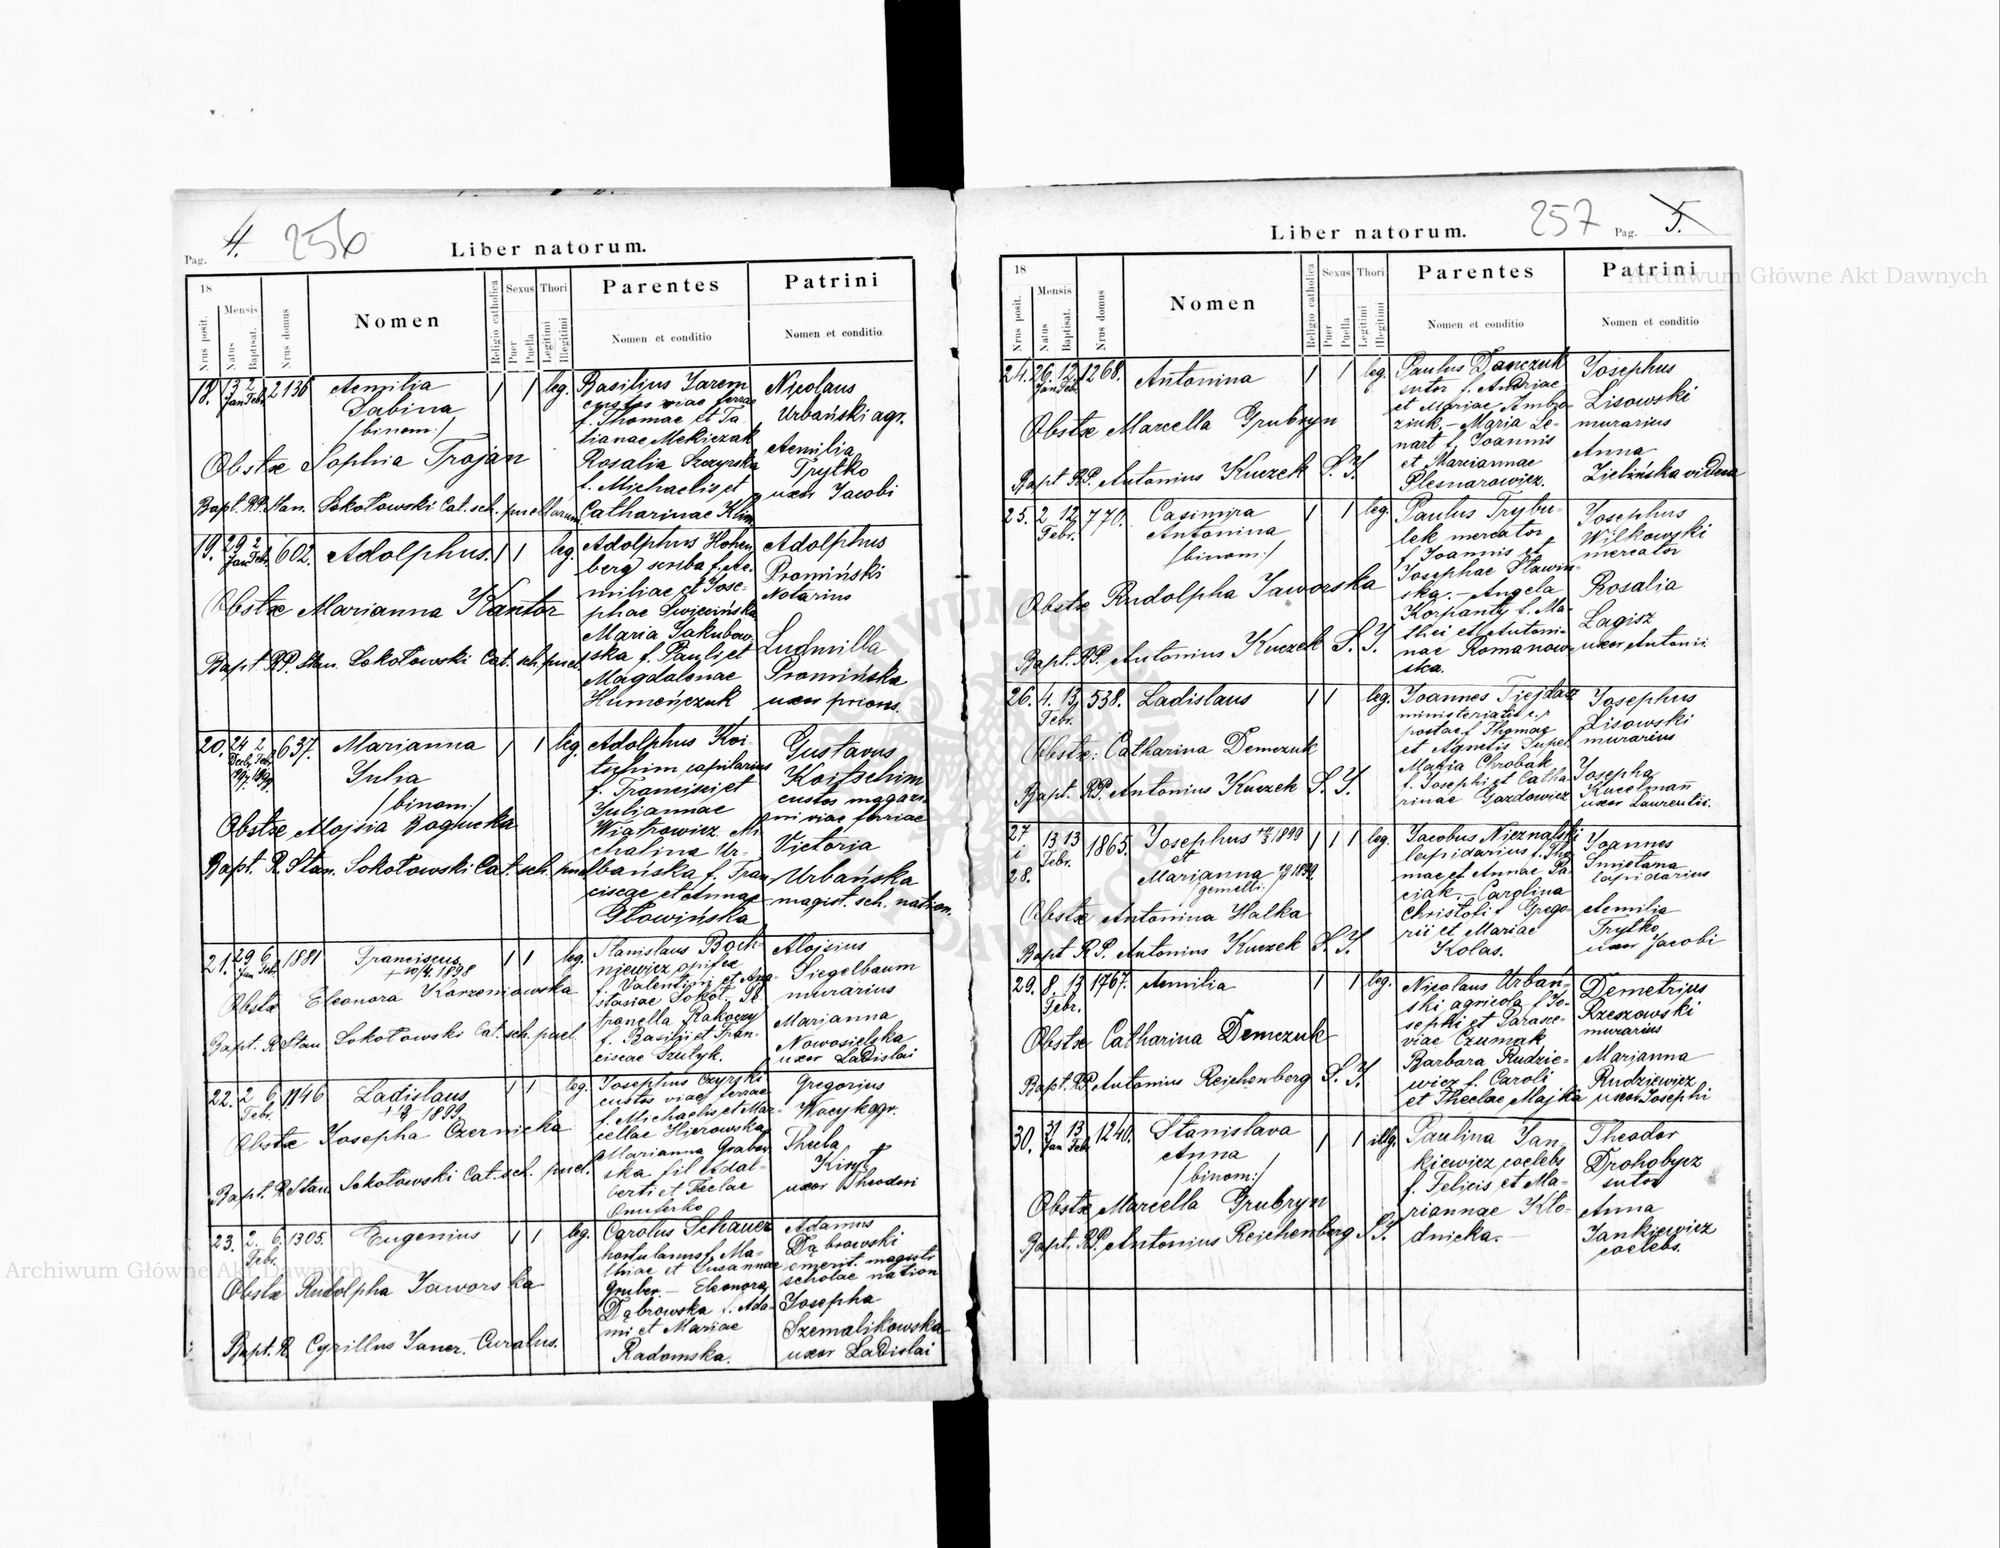 Pag. 4. 256
Liber natorum.
18
Mensis
Nrus posit.
Natus
Baptisat.
Nrus domus
Nomen
Religio catholica
Sexus
Puer
Puella
Thori
Legitimi
Illegitimi
Parentes
Nomen et conditio
Patrini
Nomen et conditio
18. 13 Jan 2 Febr. 2136 Aemilia 1 1 leg.
Sabina
/binom:/
Obstx Sophia Trojan
Bapt. RP. Stan. Sokołowski Cat. sch. puellarum
Basilius Jarem
custos viae ferrae
f. Thomae et Ta
tianae Mekiczak
Rosalia Szczyrska
f. Michaelis et
Catharinae Klim
Nicolaus
Urbański agr.
Aemilia
Trytko
uxor Jacobi
19. 29 Jan 2 Febr. 602. Adolphus. 1 1 leg.
Obstx Marianna Kantor
Bapt. RP. Stan. Sokołowski Cat. sch. puel.
Adolphus Hohen
berg scriba f. Ae
miliae et Jose-
phae
Maria Jakubow-
ska f. Pauli et
Magdalenae
Humeńczuk
Adolphus
Promiński
Notarius
Ludmilla
Promińska
uxor prioris.
20. 24 Decb. 1897 2 Febr. 1898 637. Marianna 1 1 leg.
Julia
/binom:/
Obstx Alojsia Bogucka
Bapt. R. Stan. Sokołowski Cat. sch. puel
Adolphus Koi-
tschim
f. Francisci et
Juliannae
Wiatrowicz Mi
chalina Ur-
bańska f. Fran
ciscae et Annae
Głowińska
Gustavus
Koitschim
custos magazi-
ni viae ferriae
Victoria
Urbańska
magist. sch. nation.
21. 29 Jan 6 Febr. 1881 Franciscus 1 1 leg.
1898
Obstx Eleonora Korzeniowska
Bapt. R. Stan Sokołowski Cat. sch. puel
Stanislaus Boch-
niewicz opifex
f. Valentini et Ana-
stasiae Sokół. Pe
tronella Rakoczy
f. Basilii et Fran-
ciscae Szulyk.
Alojsius
Siegelbaum
murarius
Marjanna
Nowosielska
uxor Ladislai
22. 2 6 Febr. 1146 Ladislaus 1 1 leg.
1899
Obstx Josepha Czernicka
Bapt. R. Stan. Sokołowski Cat. sch. puel.
Josephus Czyrski
custos viae ferrae
f. Michaelis et Mar-
cellae Hjerowska
Marianna Grabow
ska fil Adal-
berti et Taclae
Onuferko
Gregorius
Wacyk agr.
Thecla
uxor Theodori
23. 2. 6. Febr. 1305. Eugenius 1 1 leg.
Obstx Rudolpha Jaworska
Bapt. R. Cyrillus Janer. Curatus.
Carolus Schauer
hortulanus f. Ma-
thiae et Susannae
Gruber. — Eleonora
Dąbrowska f. Ada-
mi et Mariae
Radomska.
Adamus
Dąbrowski
emerit. magistr
scholae nation
Josepha
Szemalikowska
uxor Ladislai
257 Pag. 5.
Liber natorum.
18
Mensis
Nrus posit.
Natus
Baptisat.
Nrus domus
Nomen
Religio catholica
Sexus
Puer
Puella
Thori
Legitimi
Illegitimi
Parentes
Nomen et conditio
Patrini
Nomen et conditio
24. 26. Jan 12. Febr. 1268. Antonina 1 1 leg.
Obstx Marcella Grubryn
Bapt RP. Antonius Kuczek S. J.
Paulus Danczuk
sutor f. Andriae
et Mariae Ambro-
ziuk. — Maria Le-
nart f. Joannis
et Marciannae
Plesnarowicz.
Josephus
Lisowski
murarius
Anna
Zielińska vidua
25. 2 12 Febr. 770. Casimira 1 1 leg.
Antonina
/binom:/
Obstx Rudolpha Jaworska
Bapt. RP. Antonius Kuczek S. J.
Paulus Trybu-
lek mercator
f. Joannis et
Josephae Sławin-
ska. — Angela
Korpanty f. Ma-
thei et Antoni-
nae Romanow-
ska.
Josephus
Wilkowski
mercator
Rosalia
Lagisz
uxor Antonii.
26. 4. 13 Febr. 538. Ladislaus 1 1 leg.
Obstx: Catharina Demczuk
Bapt. RP. Antonius Kuczek S. J.
Joannes Tiejdasz
ministerialis c. r
postae f. Thomae
et Agnetis Supel
Maria Chrobak
f. Josephi et Catha
rinae Gazdowicz
Josephus
Lisowski
murarius
Josepha
Kucelmañ
uxor Laurentii.
27 i 28. 13 13 Febr. 1865. Josephus 1899 1 1 1 leg.
et
Marianna 1899.
gemelli.
Obstx Antonina Halka
Bapt R.P. Antonius Kuczek S. J.
Jacobus Nieznalski
lapidarius f. Tho
mae et Annae Pa-
ciak. — Carolina
Christofi f Grego-
rii et Mariae
Kolas.
Joannes
Smietana
lapidarius
Aemilia
Trytko
uxor Jacobi
29. 8. 13 Febr. 1767. Aemilia 1 1 leg.
Obstx Catharina Demczuk
Bapt. RP. Antonius Reichenberg S. J.
Nicolaus Urbań-
ski agricola f Jo-
sephi et Parasce-
viae Czumak
Barbara Rudzie-
wicz f. Caroli
et Theclae Majka
Demetrius
Rzeszowski
murarius
Marjanna
Rudziewicz
uxor Josephi
30. 31 Jan 13 Feb. 1240. Stanislava 1 1 illg.
Anna
/binom:/
Obstx Marcella Grubryn
Bapt. RP. Antonius Reichenberg S. J.
Paulina Jan-
kiewicz coelebs
f. Felicis et Ma-
riannae Kło-
dnicka. —
Theodor
Drohobycz
sutor
Anna
Jankiewicz
coelebs.
Archiwum Główne Akt Dawnych
Archiwum Główne Akt Dawnych